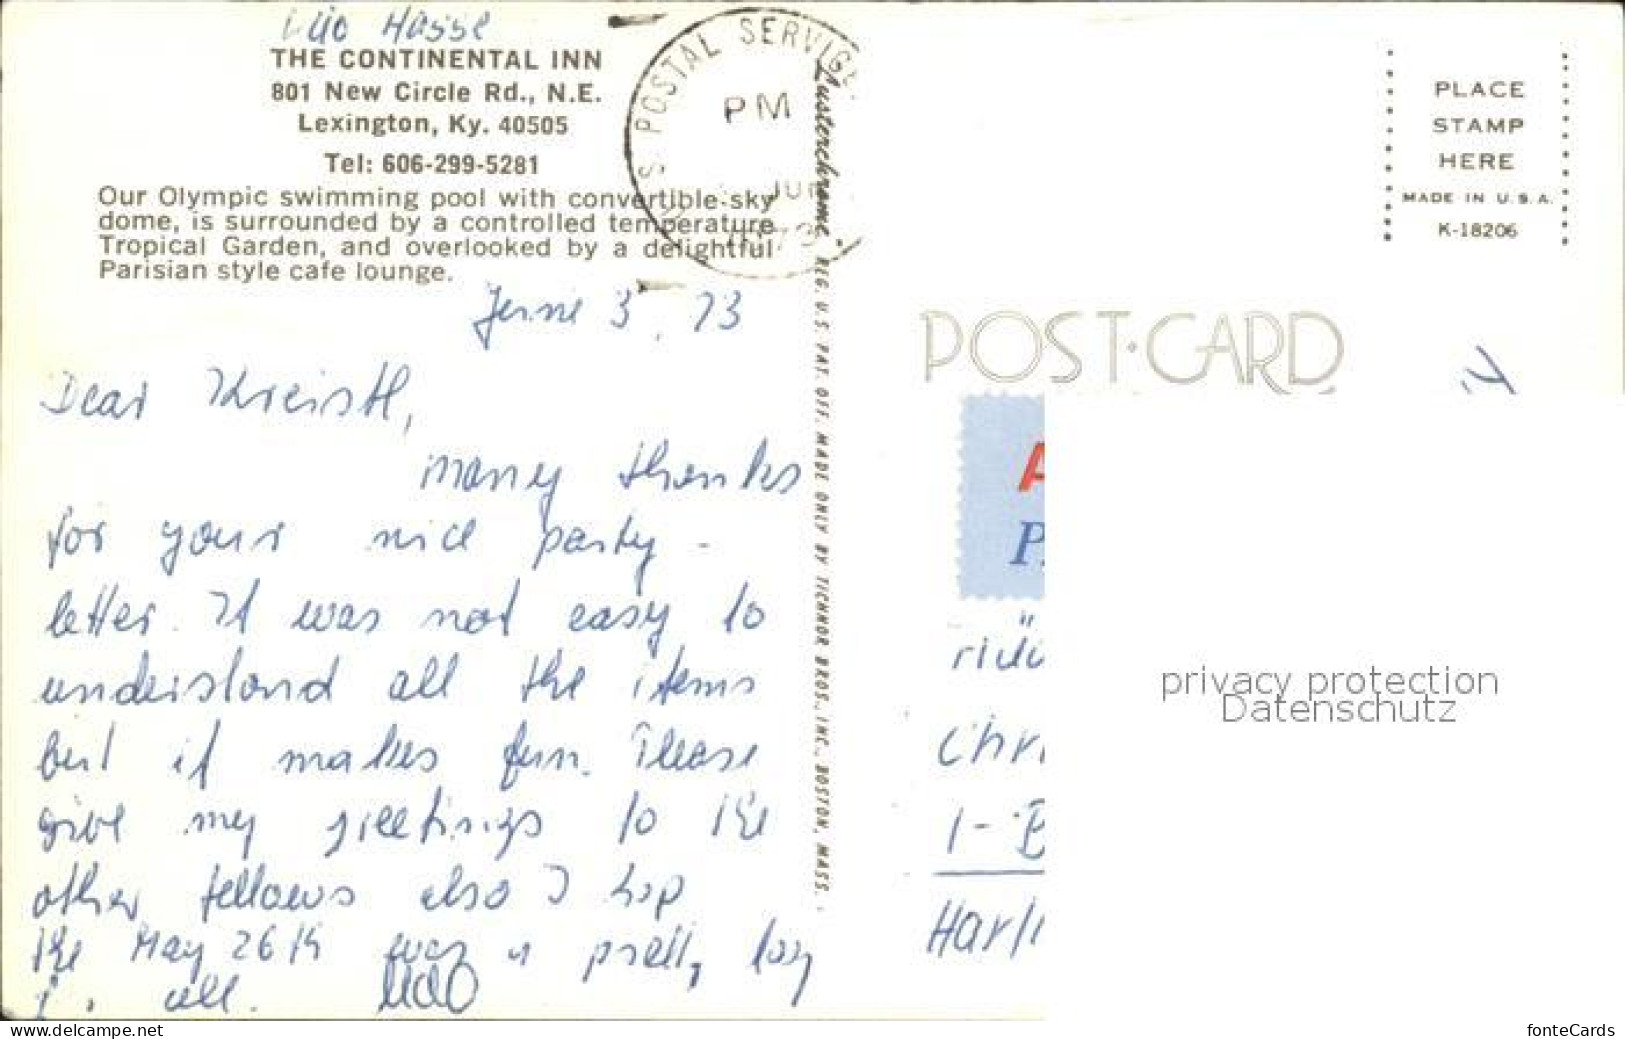 Udo Hasse
THE CONTINENTAL INN
801 New Circle Rd., N.E.
Lexington, Ky. 40505
Tel: 606-299-5281
Our Olympic swimming pool with convertible sky
dome, is surrounded by a controlled temperature
Tropical Garden, and overlooked by a delightful
Parisian style cafe lounge.
U.S. POSTAL SERVICE
PM
JUN
June 3, 73
Dear
many thanks
for your nice party-
letter. It was not easy to
understand all the items
but it makes fun. Please
give my greetings to the
other fellows also I hop
the May 26th was a pretty day
all. Udo
Lusterchrome REG. U.S. PAT. OFF. MADE ONLY BY TICHNOR BROS., INC., BOSTON, MASS.
PLACE
STAMP
HERE
MADE IN U.S.A.
K-18206
POST CARD
A
P
Chri
1-B
Harli
privacy protection
Datenschutz
www.delcampe.net
fonteCards